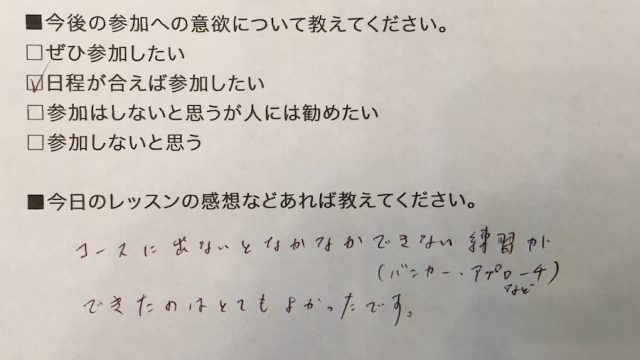 ■今後の参加への意欲について教えてください。
□ぜひ参加したい
☑日程が合えば参加したい
□参加はしないと思うが人には勧めたい
□参加しないと思う
■今日のレッスンの感想などあれば教えてください。
コースに出ないとなかなかできない練習が
(バンカー・アプローチ)
など
できたのはとてもよかったです。